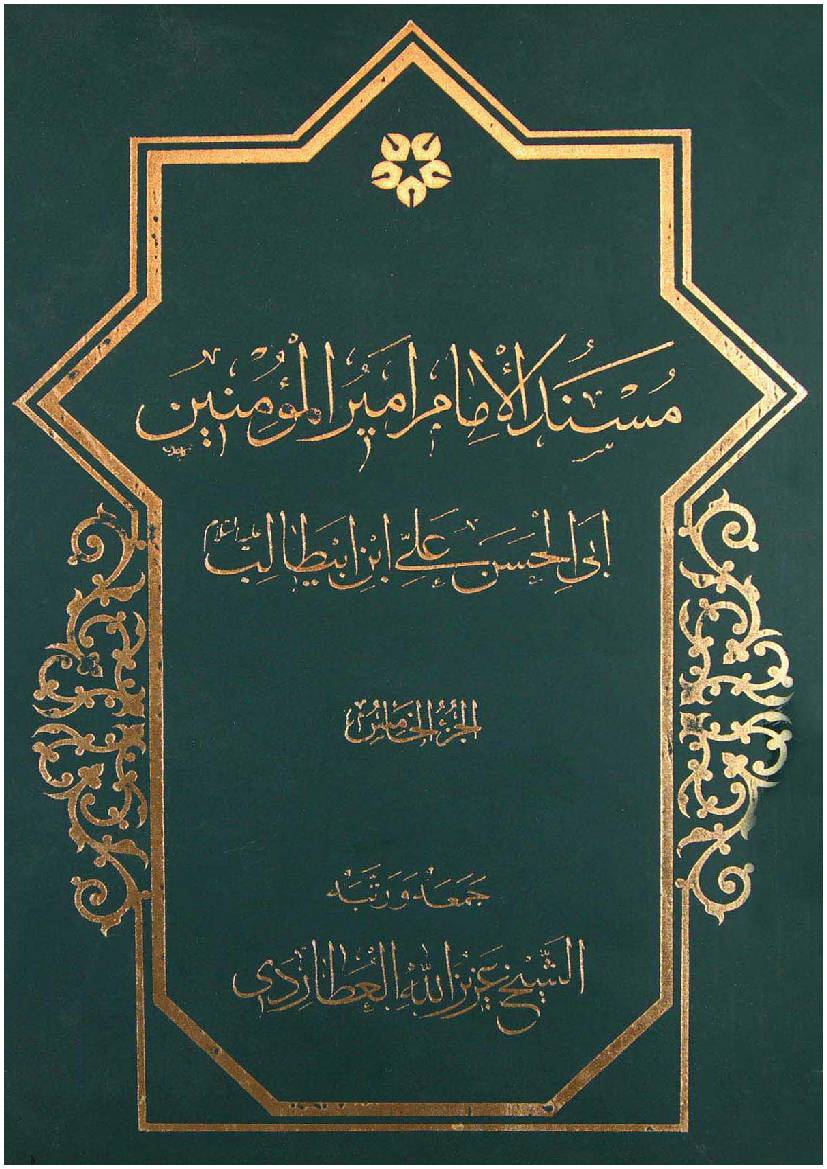 مُسْنَدُ الْإِمَامِ أَمِيرِ الْمُؤْمِنِينَ
أَبِي الْحَسَنِ عَلِيِّ ابْنِ أَبِيطَالِب عليه السلام
الجُزْءُ الخَامِسُ
جَمَعَهُ وَرَتَّبَهُ
الشَّيْخ عَزِيزُ اللهِ العُطَارِدِي